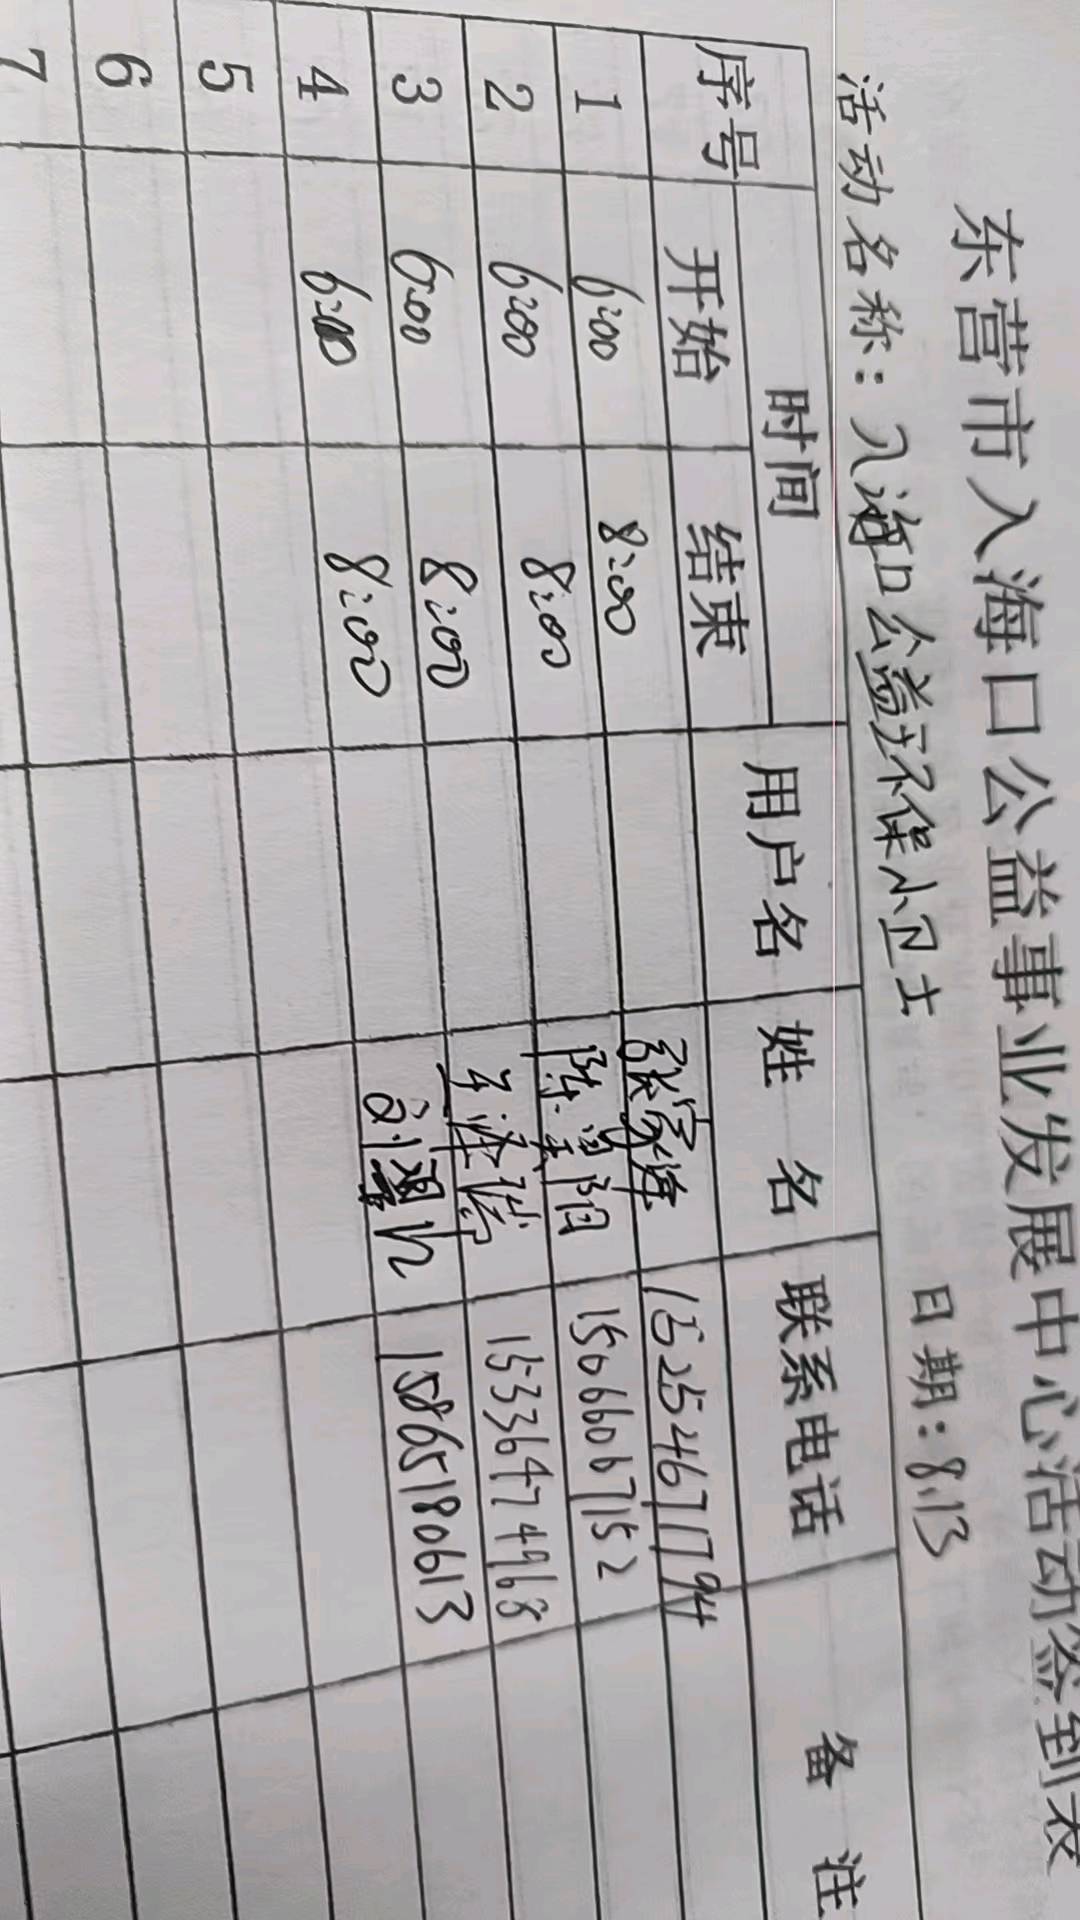 东营市入海口公益事业发展中心活动签到表
活动名称：入海口公益环保小卫士 日期：8.13
序号 时间 用户名 姓名 联系电话 备注
开始 结束
1 6:00 8:00 张家海 15254671794
2 6:00 8:00 陈 阳 15066067152
3 6:00 8:00 15336474968
4 6:00 8:00 刘 15865180613
5
6
7